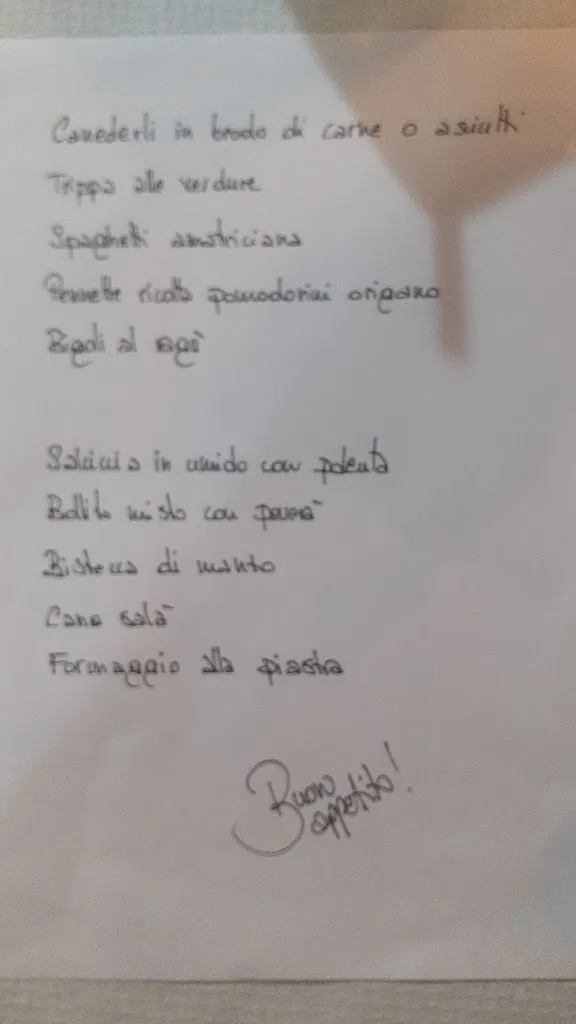 Canederli in brodo di carne o asciutti
Trippa alle verdure
Spaghetti amatriciana
Pennette ricotta pomodorini origano
Bigoli al ragù
Salsiccia in umido con polenta
Bollito misto con pearà
Bistecca di manzo
Carne salà
Formaggio alla piastra
Buon
appetito!